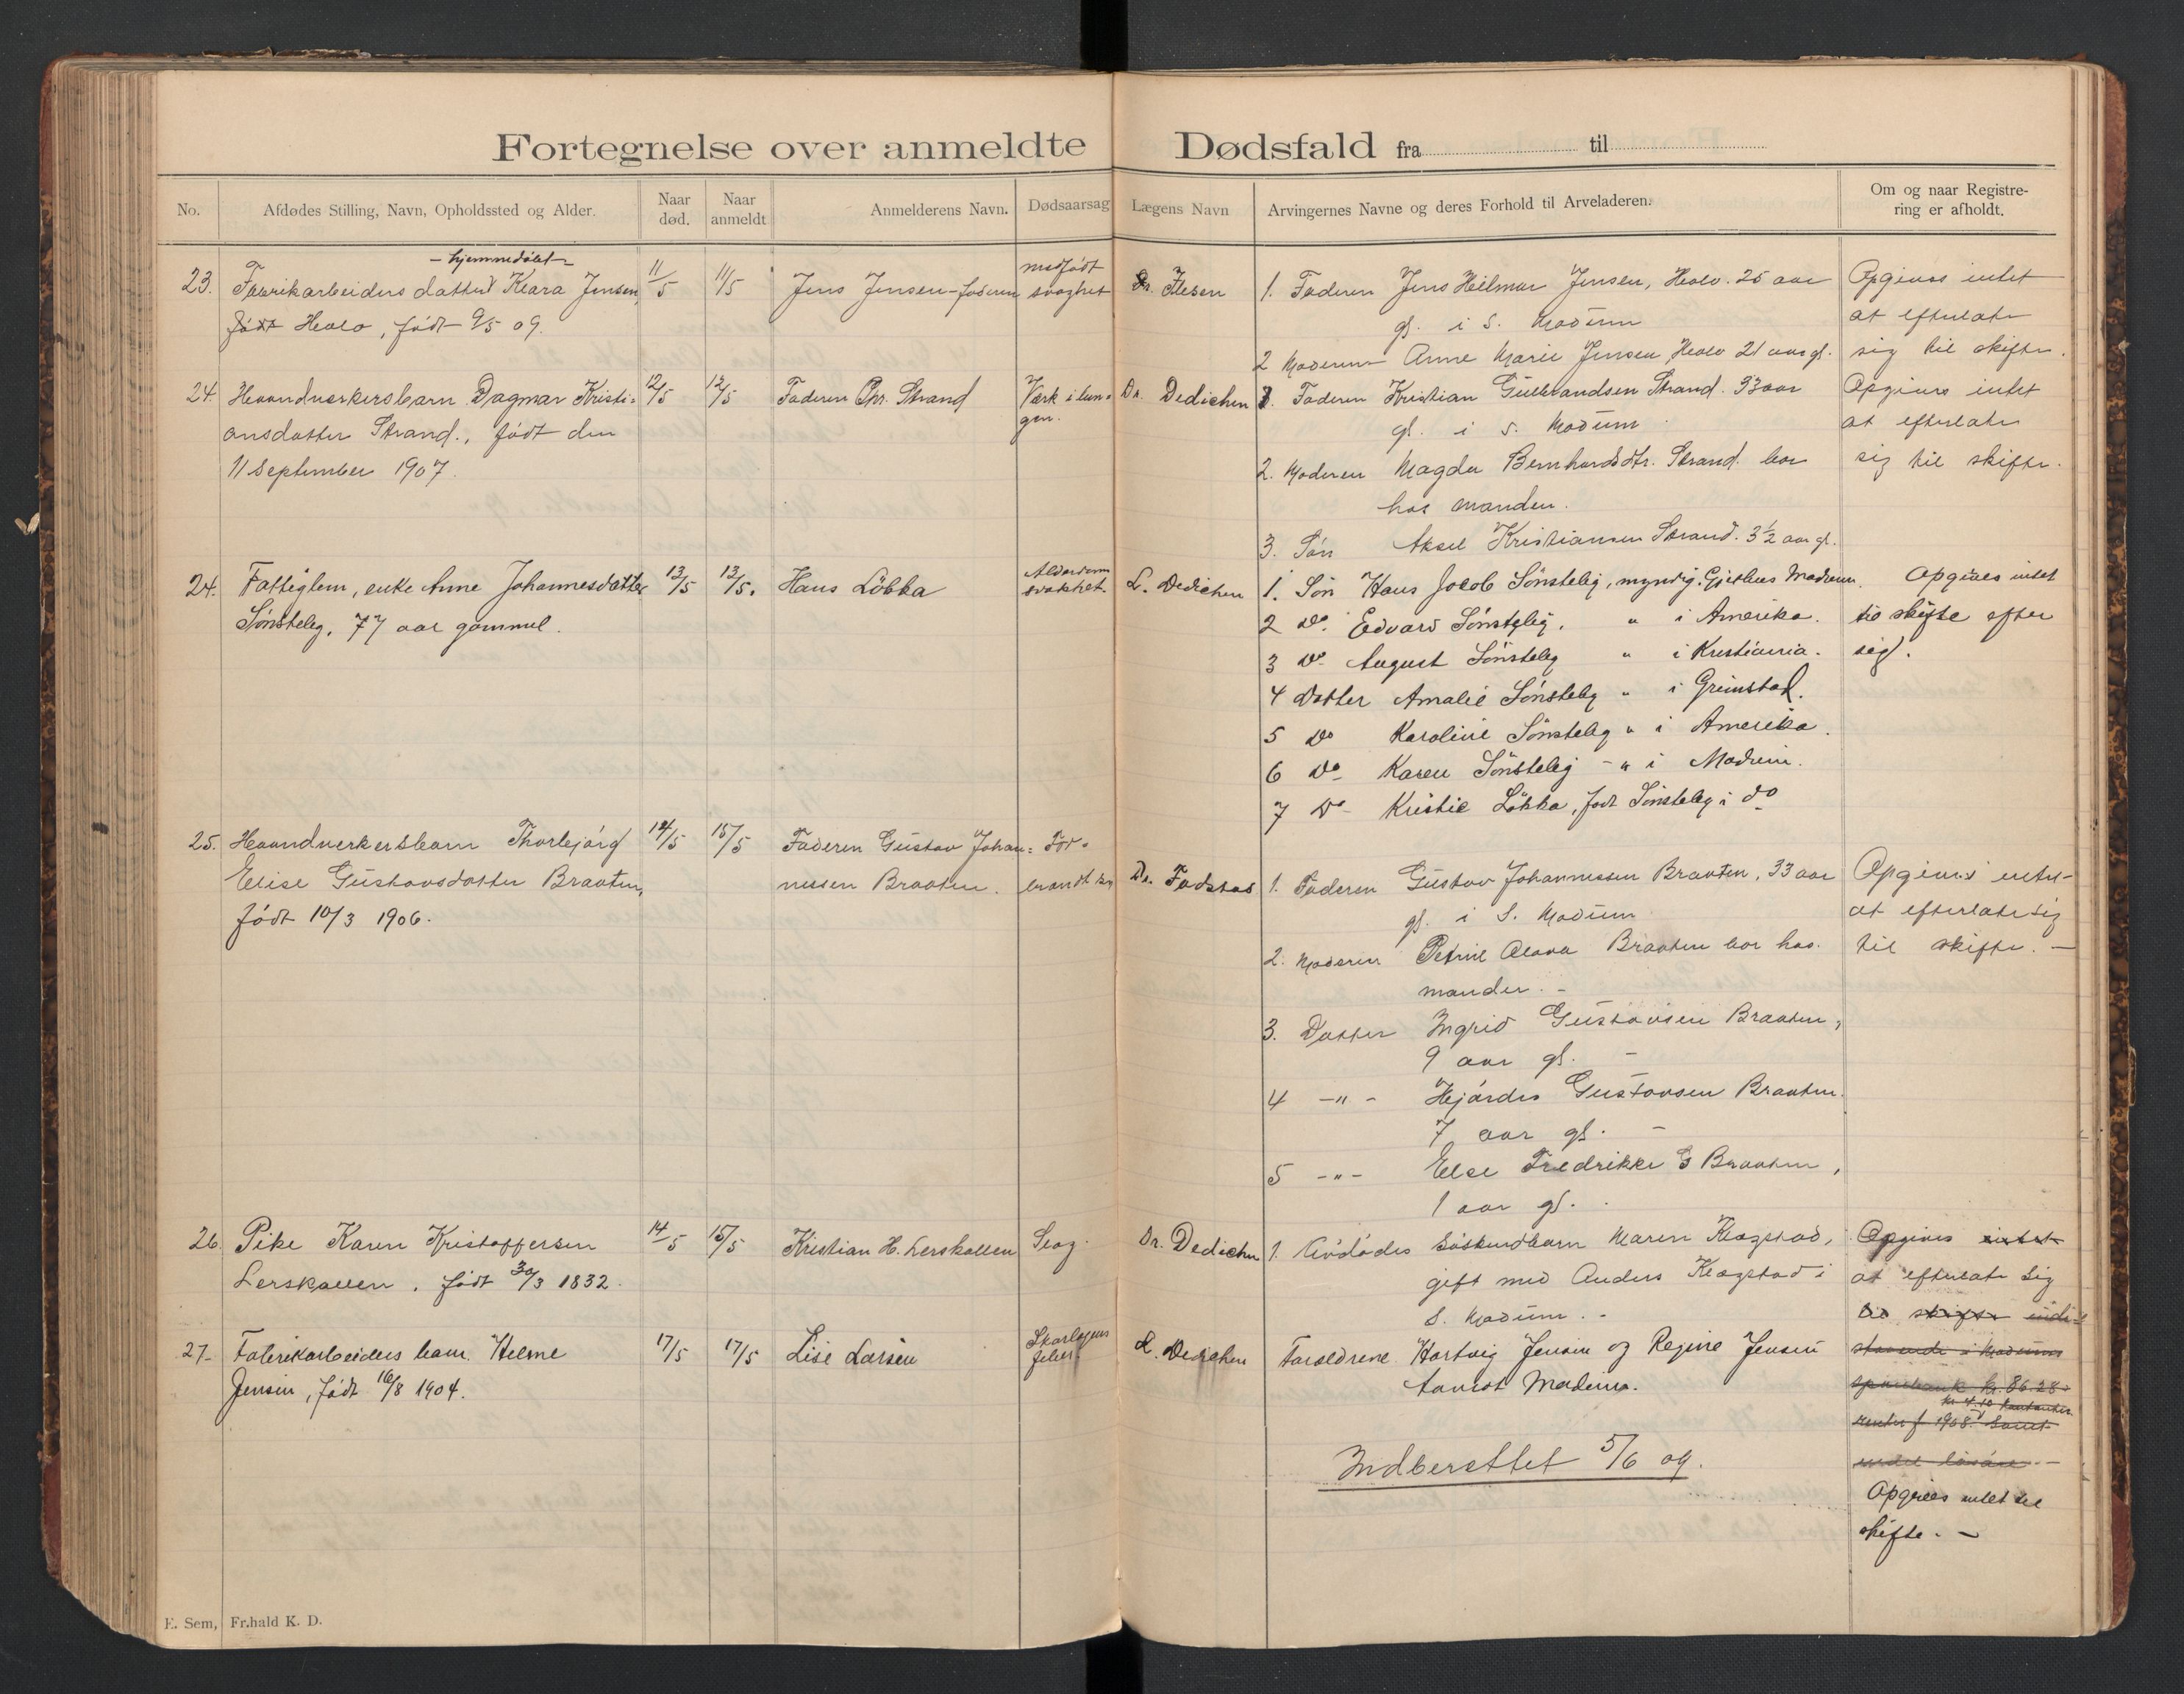 Fortegnelse over anmeldte Dødsfald fra til
No.
Afdødes Stilling, Navn, Opholdssted og Alder.
Naar død.
Naar anmeldt
Anmelderens Navn.
Dødsaarsag
Lægens Navn
Arvingernes Navne og deres Forhold til Arveladeren.
Om og naar Registre-
ring er afholdt.
- hjemmedøbt -
23. Fabrikarbeiders datter Klara Jensen,
født Hovlo, født 9/5 09.
11/5
11/5
Jens Jensen - faderen
medfødt
svaghet
Dr.
1. Faderen Jens Hilmar Jensen, 25 aar
gl. i S. Modum
2 Moderen Anne Marie Jensen 21 aar gl.
Opgives intet
at efterlate
sig til skifte.
24. Haandverkersbarn Dagmar Kristi=
ansdatter Strand., født den
11 September 1907.
12/5
12/5
Faderen Chr. Strand
Værk i lun=
gen.
Dr. Dedichen
1. Faderen Kristian Gulbrandsen Strand. 33 aar
gl. i S. Modum
2. Moderen Magda Bernhardsdtr. Strand. bor
hos manden.
3. Søn Aksel Kristiansen Strand. 3 1/2 aar gl.
Opgives intet
at efterlate
sig til skifte.
24. Fattiglem, enke Anne Johannesdatter
Sønsteby, 77 aar gammel.
13/5
13/5.
Hans Løkka
Alderdoms
svakhet.
L. Dedichen
1. Søn Hans Jakob Sønsteby, myndig. Modum.
2 Do. Edvard Sønsteby, " i Amerika.
3 Do August Sønsteby " i Kristiania.
4 Datter Amalie Sønsteby " i Grimstad.
5 Do Karoline Sønsteby " i Amerika.
6 Do Karen Sønsteby - " i Modum.
7 Do Kristie Løkka, født Sønsteby i do
Opgives intet
til skifte efter
sig.
25. Haandverkersbarn Thorbjørg
Elise Gustavsdatter Braaten,
født 10/3 1906.
14/5
15/5
Faderen Gustav Johan=
nessen Braaten.
For=
brandt
Dr. Fadstad
1. Faderen Gustav Johannessen Braaten, 33 aar
gl. i S. Modum
2. Moderen Petrine Olava Braaten bor hos
manden. -
3. Datter Ingrid Gustavsen Braaten,
9 aar gl. -
4 -"- Hjørdis Gustavsen Braaten.
7 aar gl. -
5 -"- Else Fredrikke G Braaten,
1 aar gl.
Opgives intet
at efterlate sig
til skifte. -
26. Pike Karen Kristoffersen
Lerskallen. født 30/3 1832.
14/5
15/5
Kristian H. Lerskallen
Slag.
Dr. Dedichen
1. Avdødes Søskendbarn Maren Klagstad,
gift med Anders Klagstad i
S. Modum. -
Opgives intet
at efterlate sig
til skifte inde=
staaende i Modums
sparebank kr. 86.28
kr 4.10 kontanter
renter f 1908. Samt
endel løsøre -
Opgives intet til
skifte. -
27- Fabrikarbeiders barn Helme
Jensen, født 16/8 1904.
17/5
17/5
Lise Larsen
Skarlagens
feber
L. Dedichen
Foreldrene Hartvig Jensen og Regine Jensen
Modum.
Indberettet 5/6 09.
E. Sem, Fr.hald K. D.